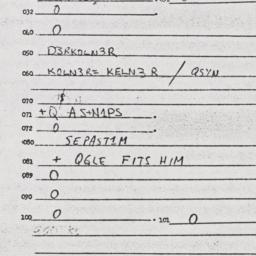 032 0
040 0
050 D3RKOLN3R
060 KOLN3R= KELN3R / QSYN
070
071 +Q AS+N1PS .
072 0
080 SEPAST1M
081 + QGLE FITS HIM
089 0
090 0
100 0 . 101 0